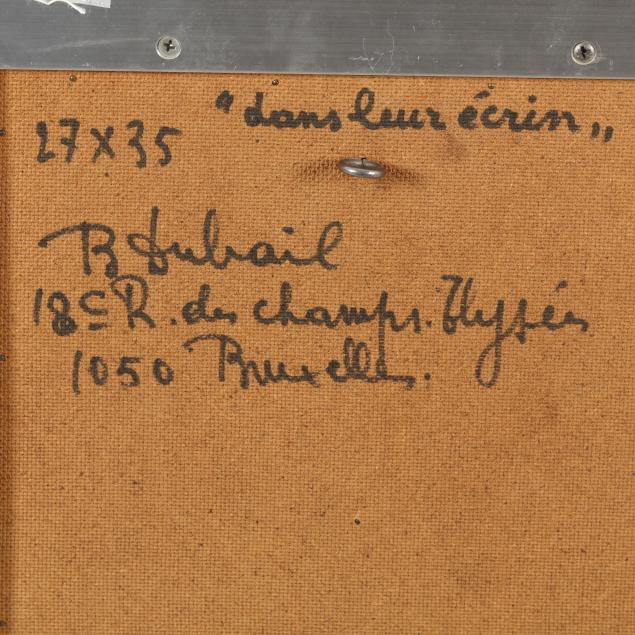 "dans leur écrin"
27 x 35
B Dubail
18 c R. des champs. Elysées
1050 Bruxelles.